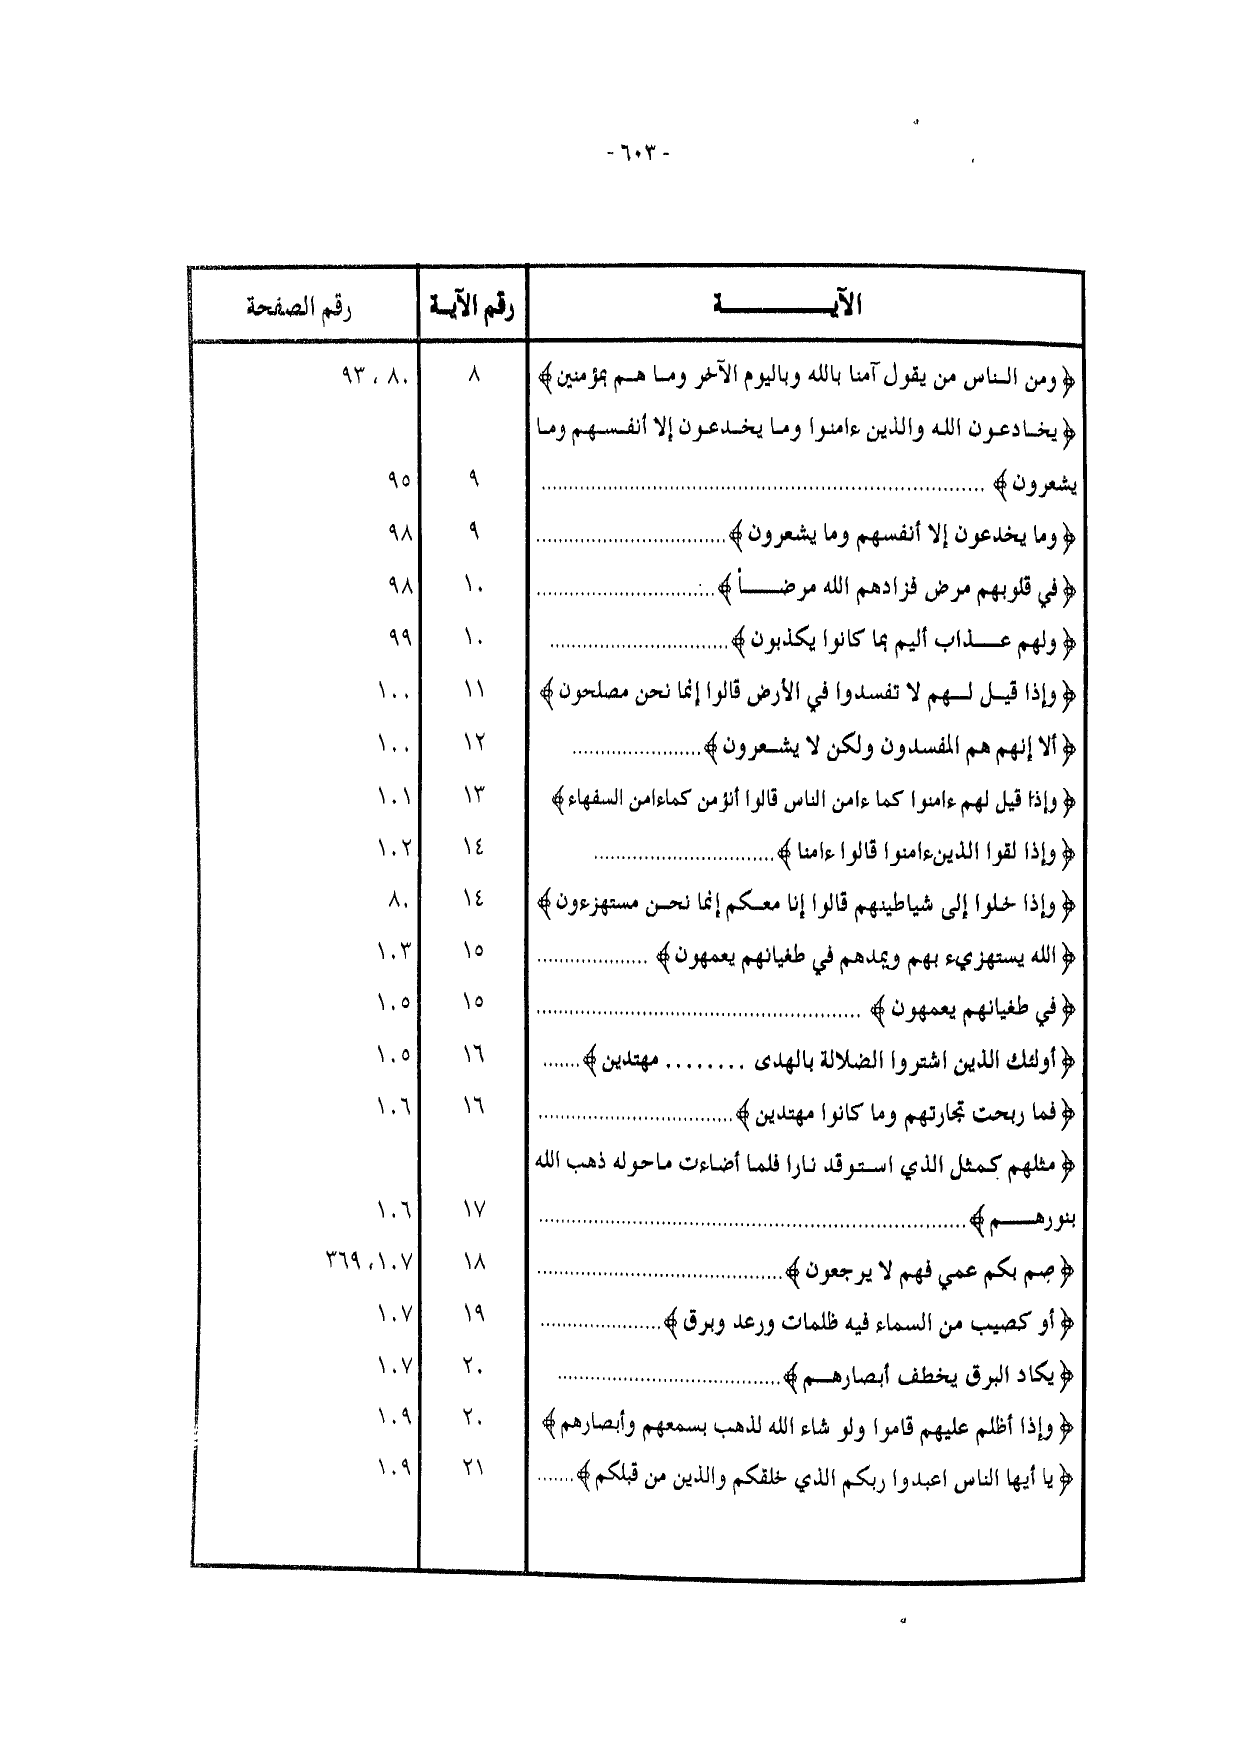 - ٦٠٣ -
الآيــــــة رقم الآيـة رقم الصفحة
﴿ ومن الناس من يقول آمنا بالله وباليوم الآخر وما هم بمؤمنين ﴾ ٨ ٨٠ ، ٩٣
﴿ يخادعون الله والذين ءامنوا وما يخدعون إلا أنفسهم وما
يشعرون ﴾ .......... ٩ ٩٥
﴿ وما يخدعون إلا أنفسهم وما يشعرون ﴾.......... ٩ ٩٨
﴿ في قلوبهم مرض فزادهم الله مرضــاً ﴾.......... ١٠ ٩٨
﴿ ولهم عــذاب أليم بما كانوا يكذبون ﴾.......... ١٠ ٩٩
﴿ وإذا قيـل لـهم لا تفسدوا في الأرض قالوا إنما نحن مصلحون ﴾ ١١ ١٠٠
﴿ ألا إنهم هم المفسدون ولكن لا يشـعرون ﴾.......... ١٢ ١٠٠
﴿ وإذا قيل لهم ءامنوا كما ءامن الناس قالوا أنؤمن كماءامن السفهاء ﴾ ١٣ ١٠١
﴿ وإذا لقوا الذينءامنوا قالوا ءامنا ﴾.......... ١٤ ١٠٢
﴿ وإذا خلوا إلى شياطينهم قالوا إنا معـكم إنما نحـن مستهزءون ﴾ ١٤ ٨٠
﴿ الله يستهزيء بهم ويمدهم في طغيانهم يعمهون ﴾ .......... ١٥ ١٠٣
﴿ في طغيانهم يعمهون ﴾ .......... ١٥ ١٠٥
﴿ أولئك الذين اشتروا الضلالة بالهدى ........ مهتدين ﴾....... ١٦ ١٠٥
﴿ فما ربحت تجارتهم وما كانوا مهتدين ﴾.......... ١٦ ١٠٦
﴿ مثلهم كمثل الذي استوقد نارا فلما أضاءت ماحوله ذهب الله
بنورهـــم ﴾.......... ١٧ ١٠٦
﴿ صم بكم عمي فهم لا يرجعون ﴾.......... ١٨ ١٠٧، ٣٦٩
﴿ أو كصيب من السماء فيه ظلمات ورعد وبرق ﴾.......... ١٩ ١٠٧
﴿ يكاد البرق يخطف أبصارهــم ﴾.......... ٢٠ ١٠٧
﴿ وإذا أظلم عليهم قاموا ولو شاء الله لذهب بسمعهم وأبصارهم ﴾ ٢٠ ١٠٩
﴿ يا أيها الناس اعبدوا ربكم الذي خلقكم والذين من قبلكم ﴾....... ٢١ ١٠٩